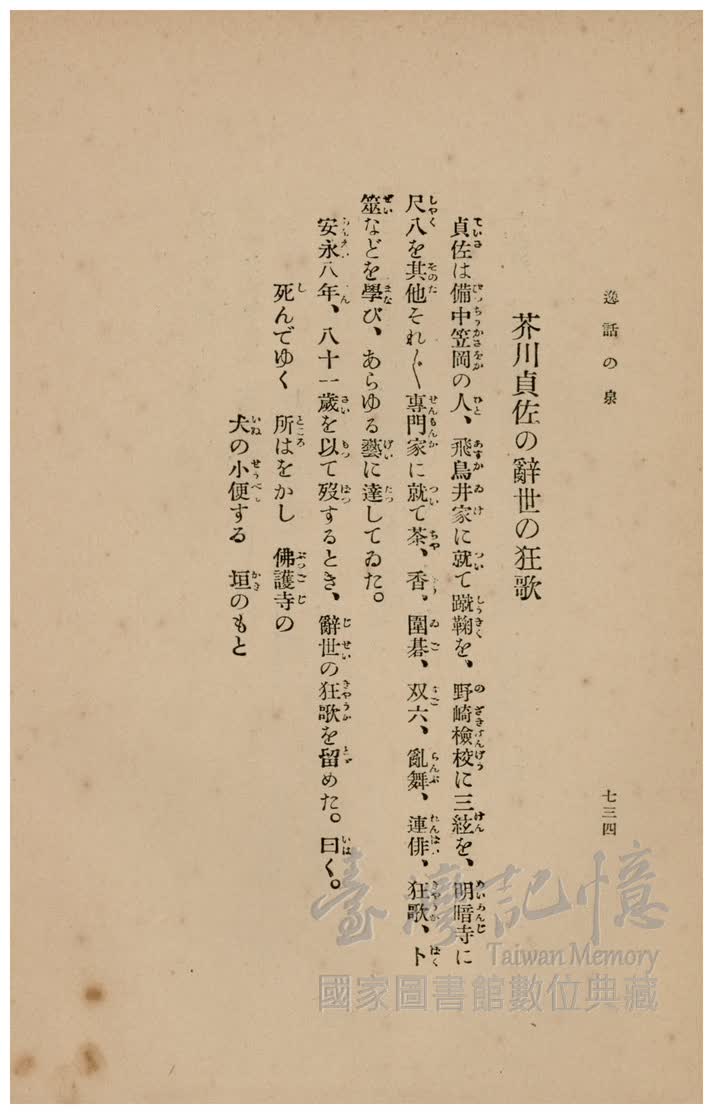 逸話の泉
七三四
芥川貞佐の辭世の狂歌
貞佐は備中笠岡の人、飛鳥井家に就て蹴鞠を、野崎檢校に三絃を、明暗寺に
尺八を其他それ〴〵專門家に就て茶、香、圍碁、双六、亂舞、連俳、狂歌、卜
筮などを學び、あらゆる藝に達してゐた。
安永八年、八十一歲を以て歿するとき、辭世の狂歌を留めた。曰く。
死んでゆく 所はをかし 佛護寺の
犬の小便する 垣のもと
臺灣記憶
Taiwan Memory
國家圖書館數位典藏